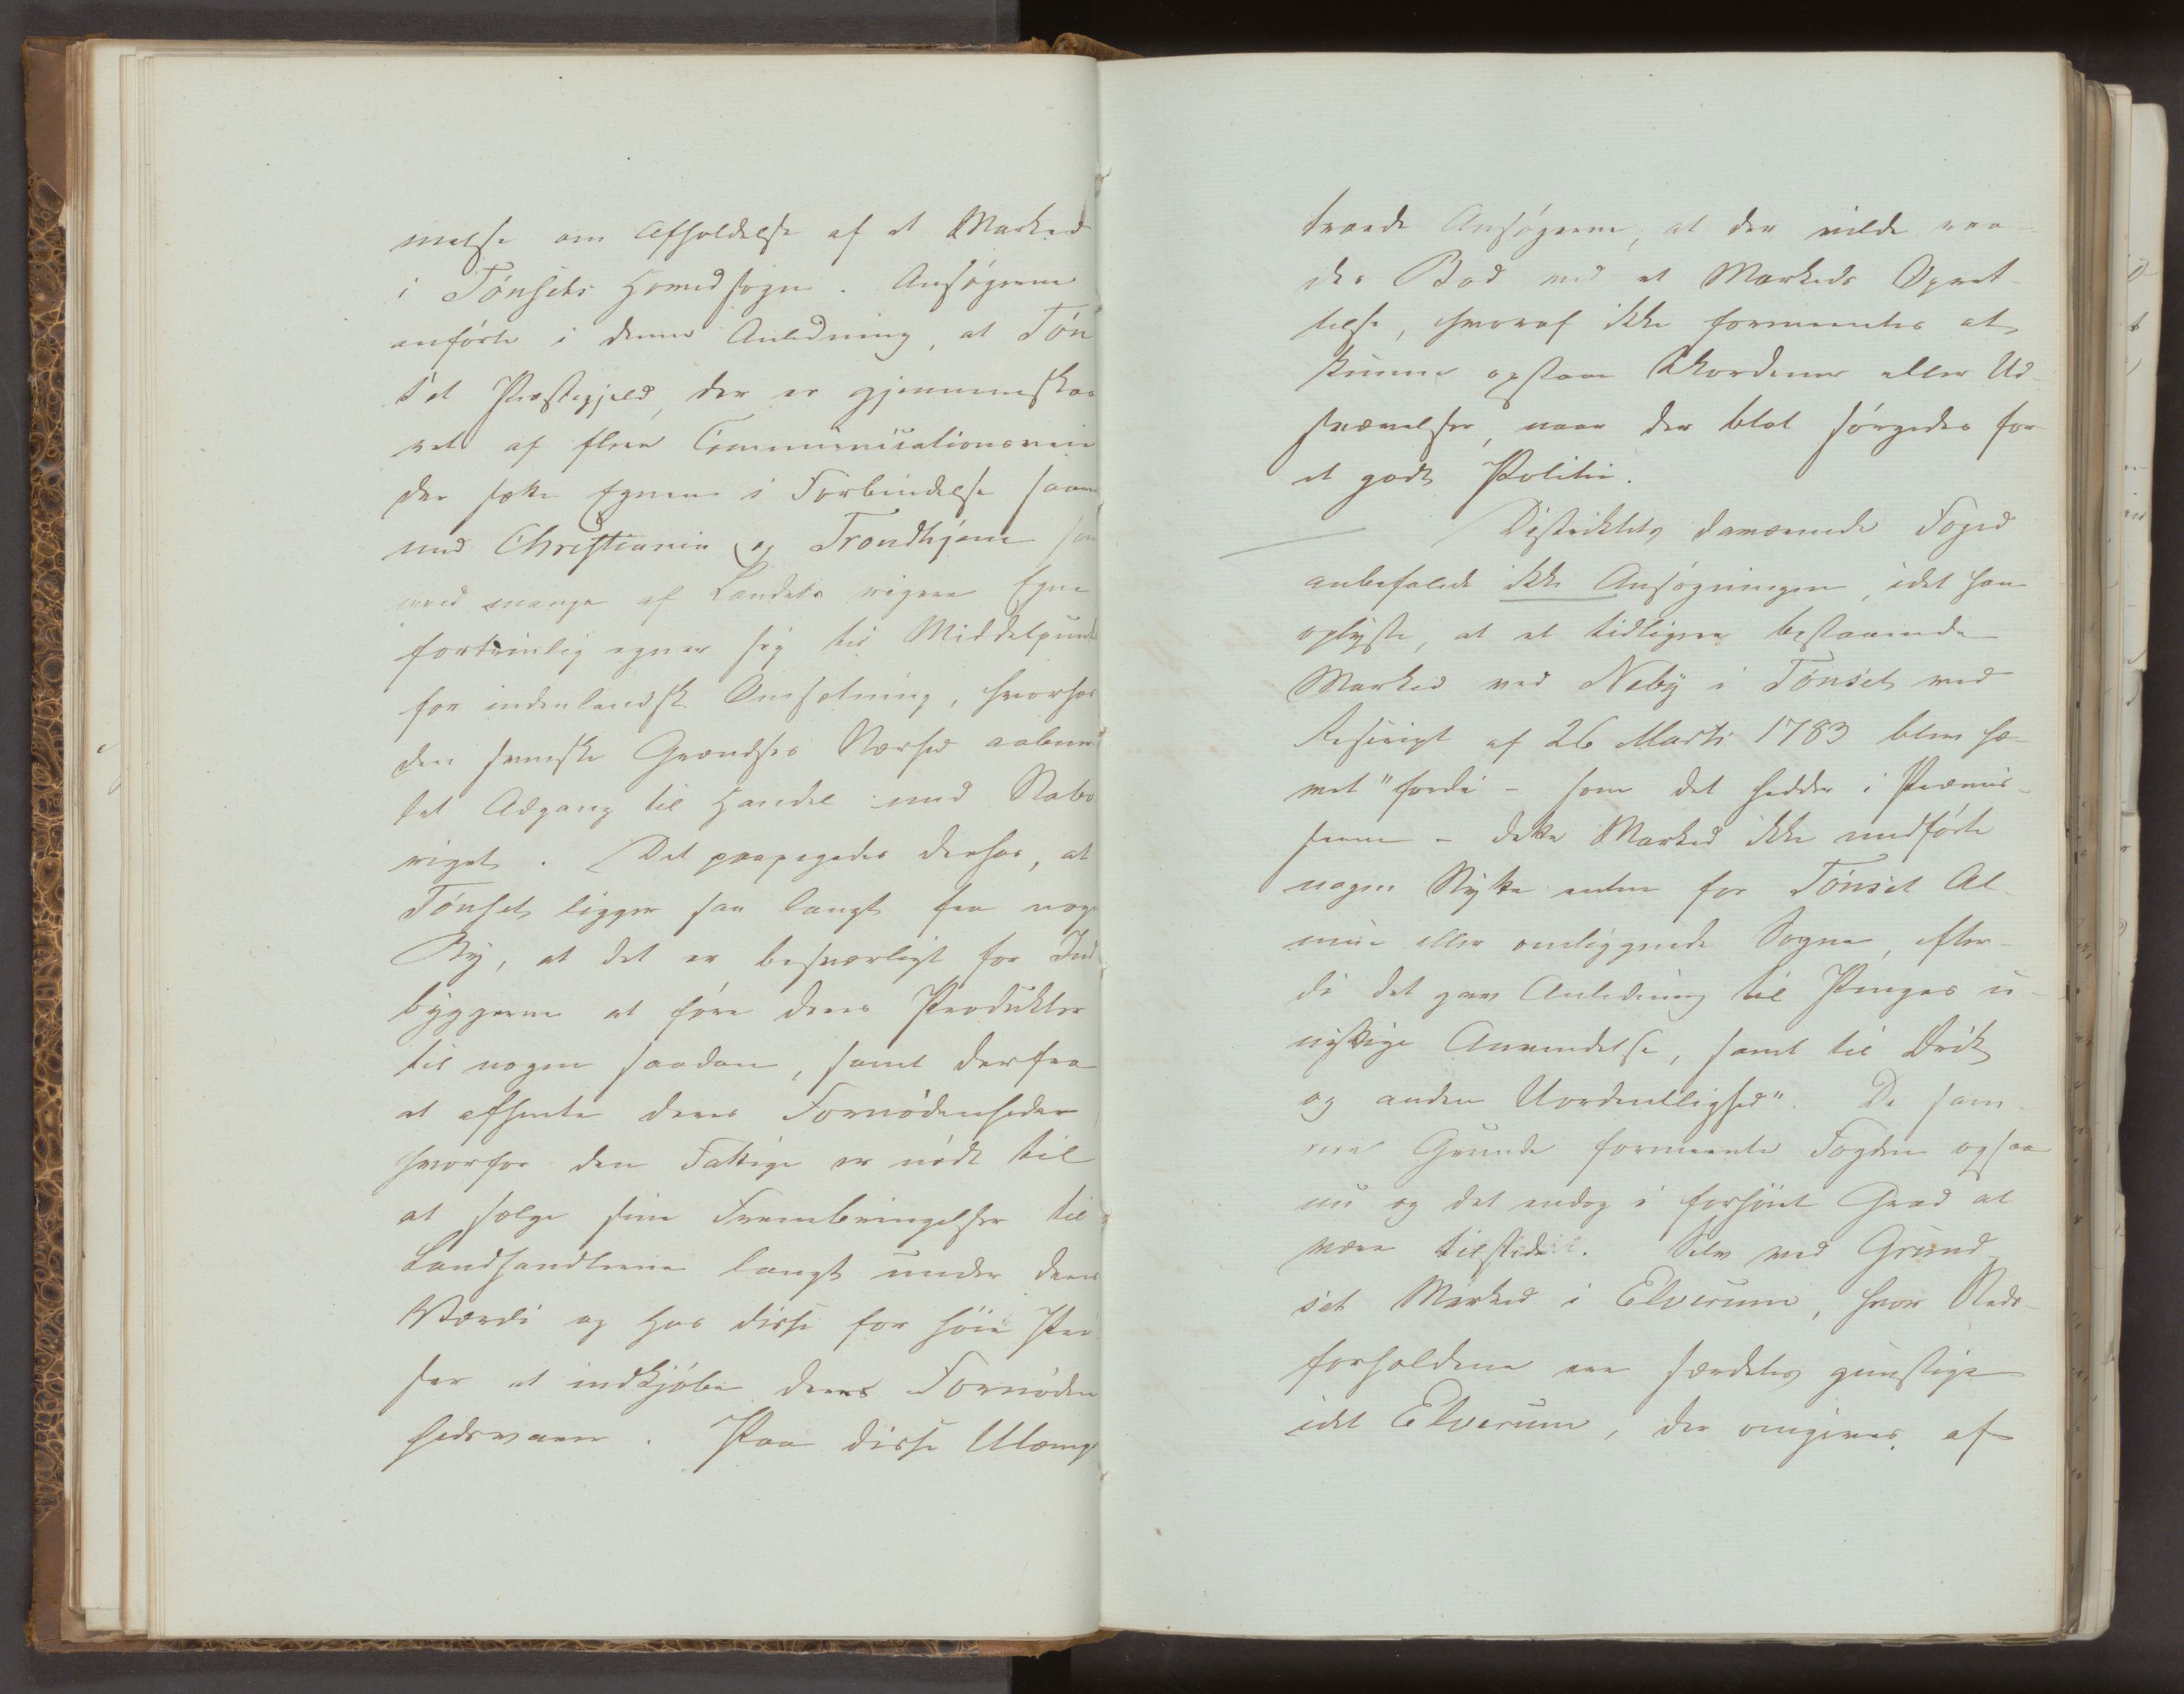 melse om Afholdelse af et Marked
i Tønsets Hovedsogn. Ansøgerne
anførte i denne Anledning, at Tøn
set Præstegjeld, der er gjennemskaa
ret af flere Communicationsveie
der sætte Egnen i Forbindelse saavel
med Christiania og Trondhjem som
med mange af Landets rigere Egne
fortrinlig egner sig til Middelpunkt
for indenlandsk Omsætning, hvorhos
den svenske Grændses Nærhed aabner
let Adgang til Handel med Nabo
riget. Det paapegedes derhos, at
Tønset ligger saa langt fra nogen
By, at det er besværligt for Ind
byggerne at føre deres Produkter
til nogen saadan, samt derfra
at afhente deres Fornødenheder,
hvorfor den Fattige er nødt til
at sælge sine Frembringelser til
Landhandlerne langt under deres
Værdi og hos disse for høie Pri
ser at indkjøbe deres Fornøden
hedsvarer. Paa disse Ulemper
troede Ansøgerne, at der vilde raa-
des Bod ved et Markeds Opret-
telse, hvoraf ikke formeentes at
kunne opstaae Uordener eller Ud-
svævelser, naar der blot sørgedes for
et godt Politie.
Distriktets daværende Foged
anbefalede ikke Ansøgningen, idet han
oplyste, at et tidligere bestaaende
Marked ved Neby i Tønset ved
Rescript af 26 Marts 1783 blev hæ-
vet "fordi - som det hedder i Præmis-
serne - dette Marked ikke medførte
nogen Nytte enten for Tønset Al-
mue eller omliggende Sogne, efter-
di det gav Anledning til Penges u-
nyttige Anvendelse, samt til Drik
og anden Uordentlighed". De sam-
me Grunde formeente Fogden ogsaa
nu og det endog i forhøiet Grad at
være tilstede. Selv ved Grund-
set Marked i Elverum, hvor Steds-
forholdene ere særdeles gunstige
idet Elverum, der omgives af